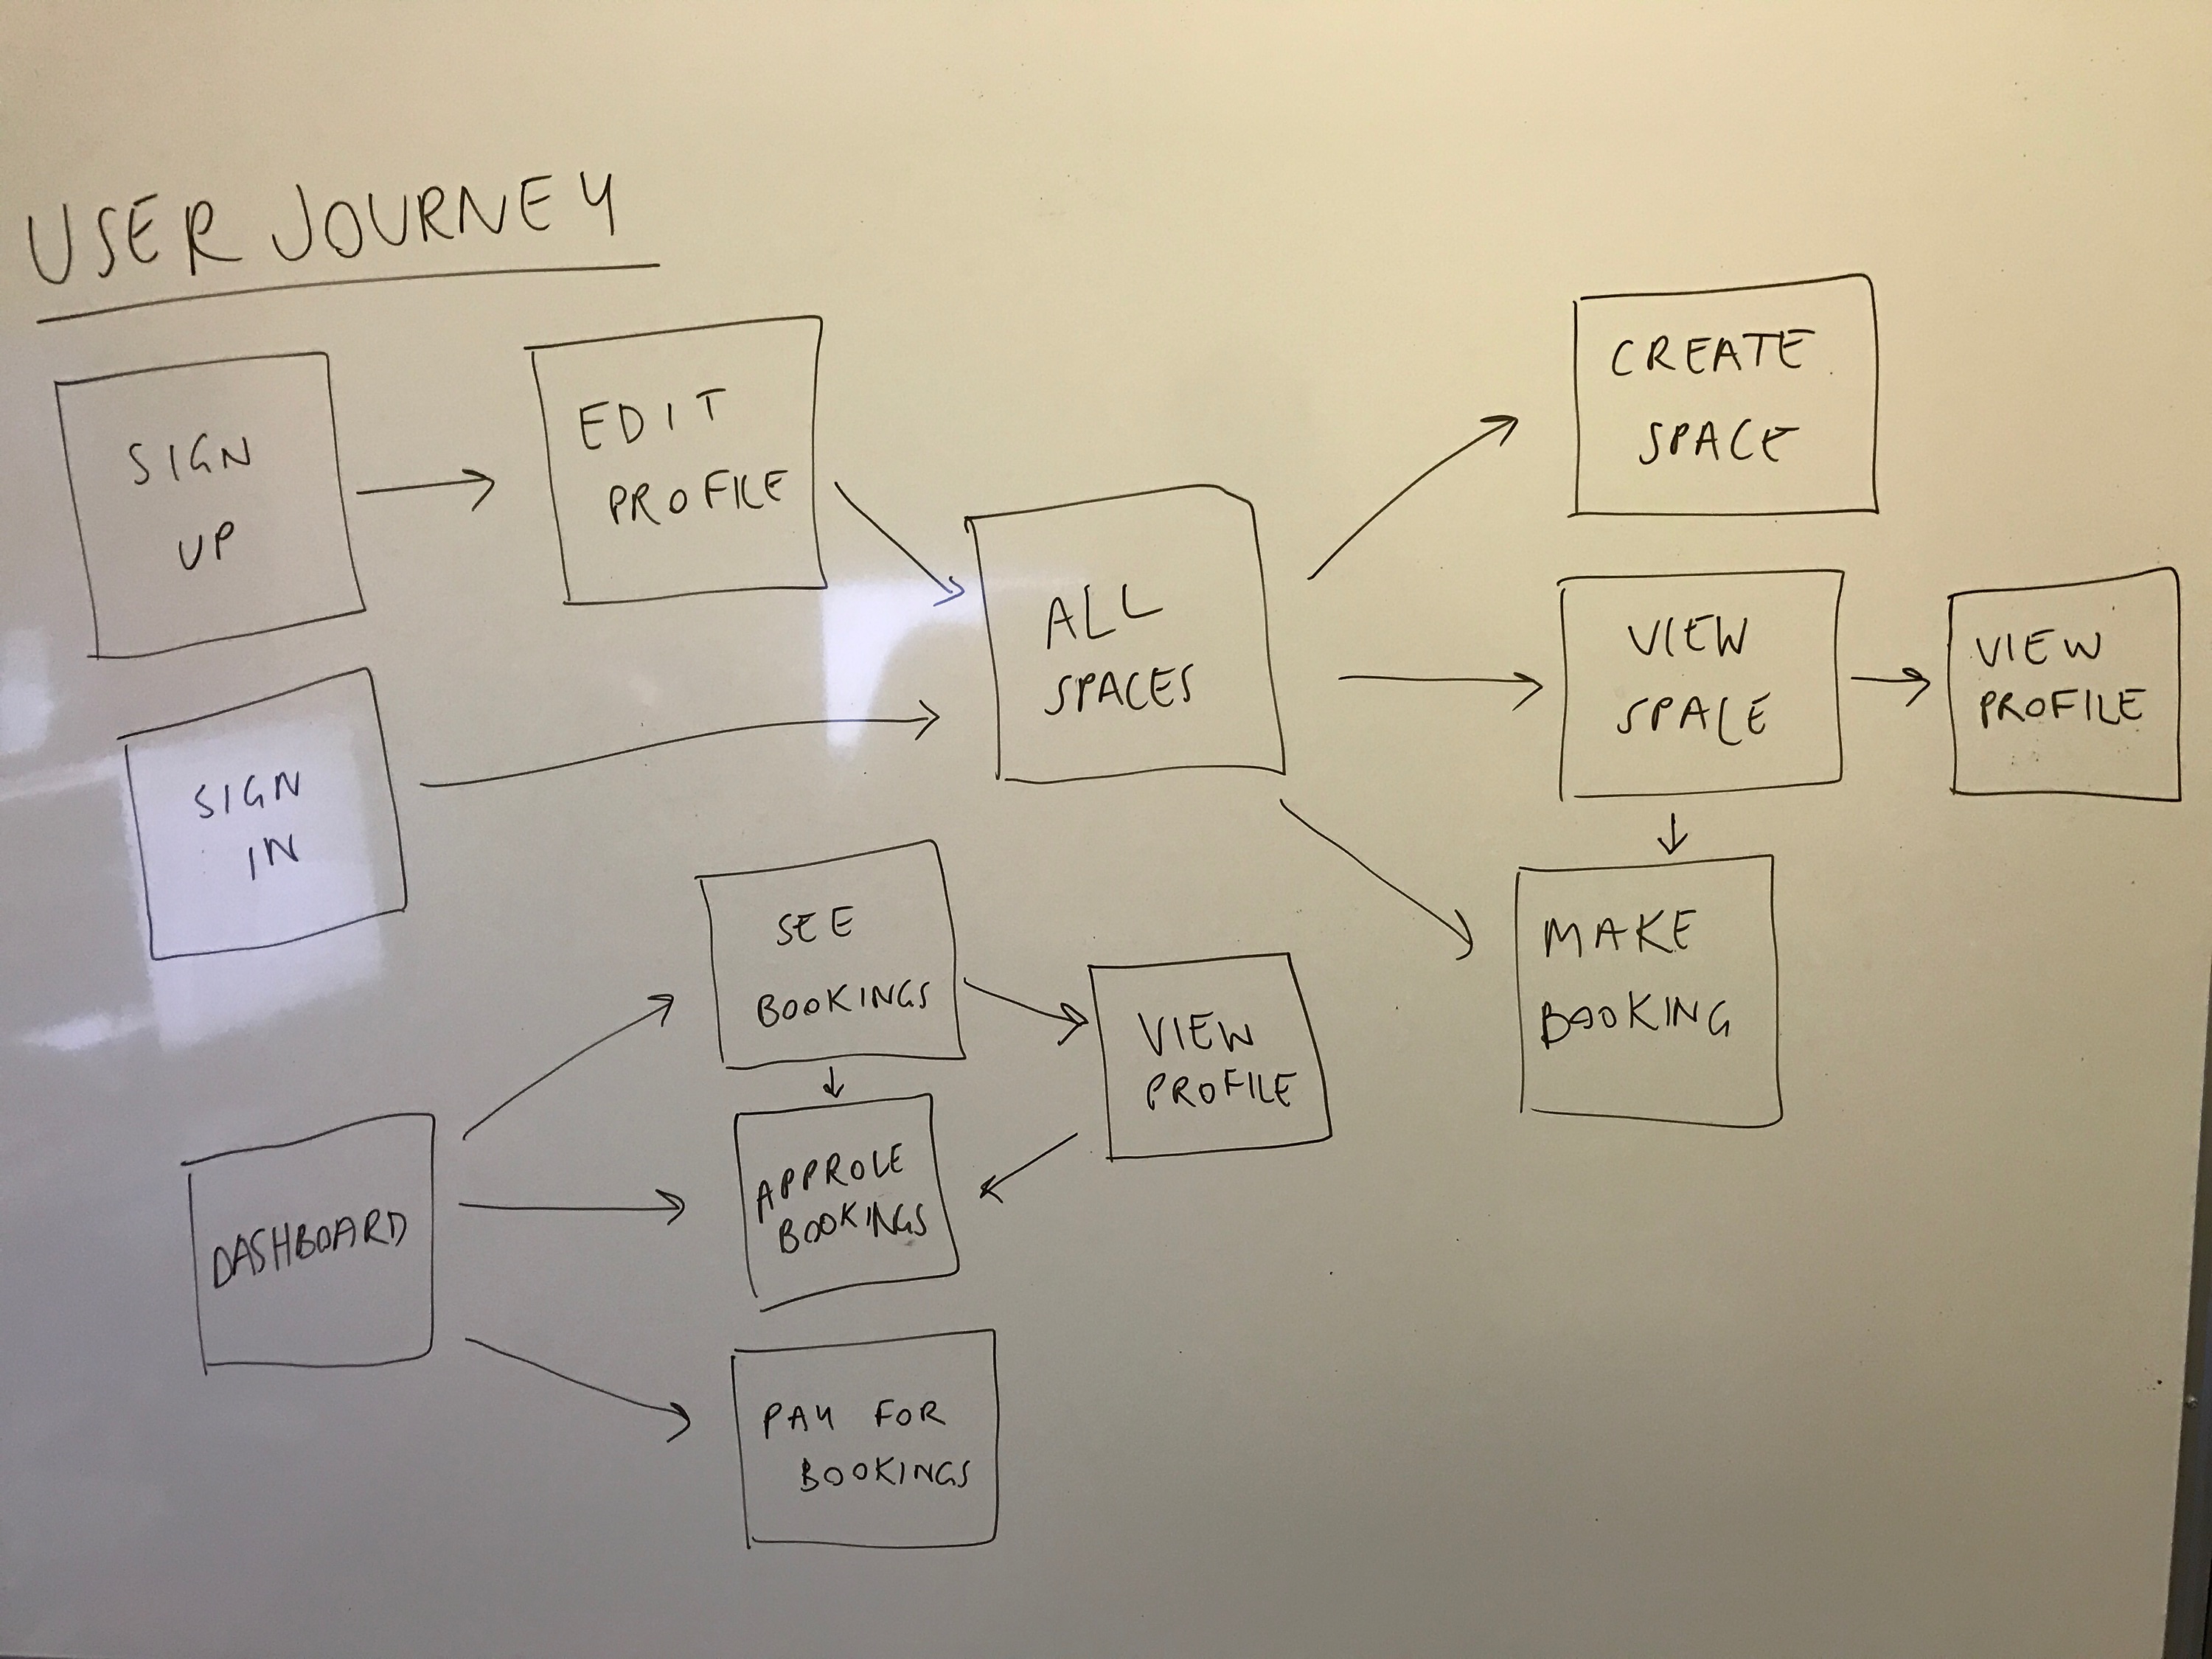 USER JOURNEY
SIGN
UP
EDIT
PROFILE
ALL
SPACES
CREATE
SPACE
VIEW
SPACE
VIEW
PROFILE
MAKE
BOOKING
SIGN
IN
SEE
BOOKINGS
VIEW
PROFILE
APPROVE
BOOKINGS
DASHBOARD
PAY FOR
BOOKINGS